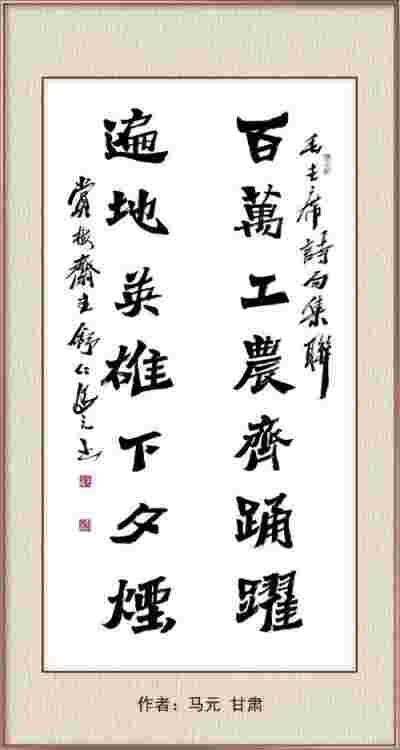 毛主席詩句集聯
百萬工農齊踊躍
遍地英雄下夕煙
齋主舒仁馬元书
作者：马元 甘肃